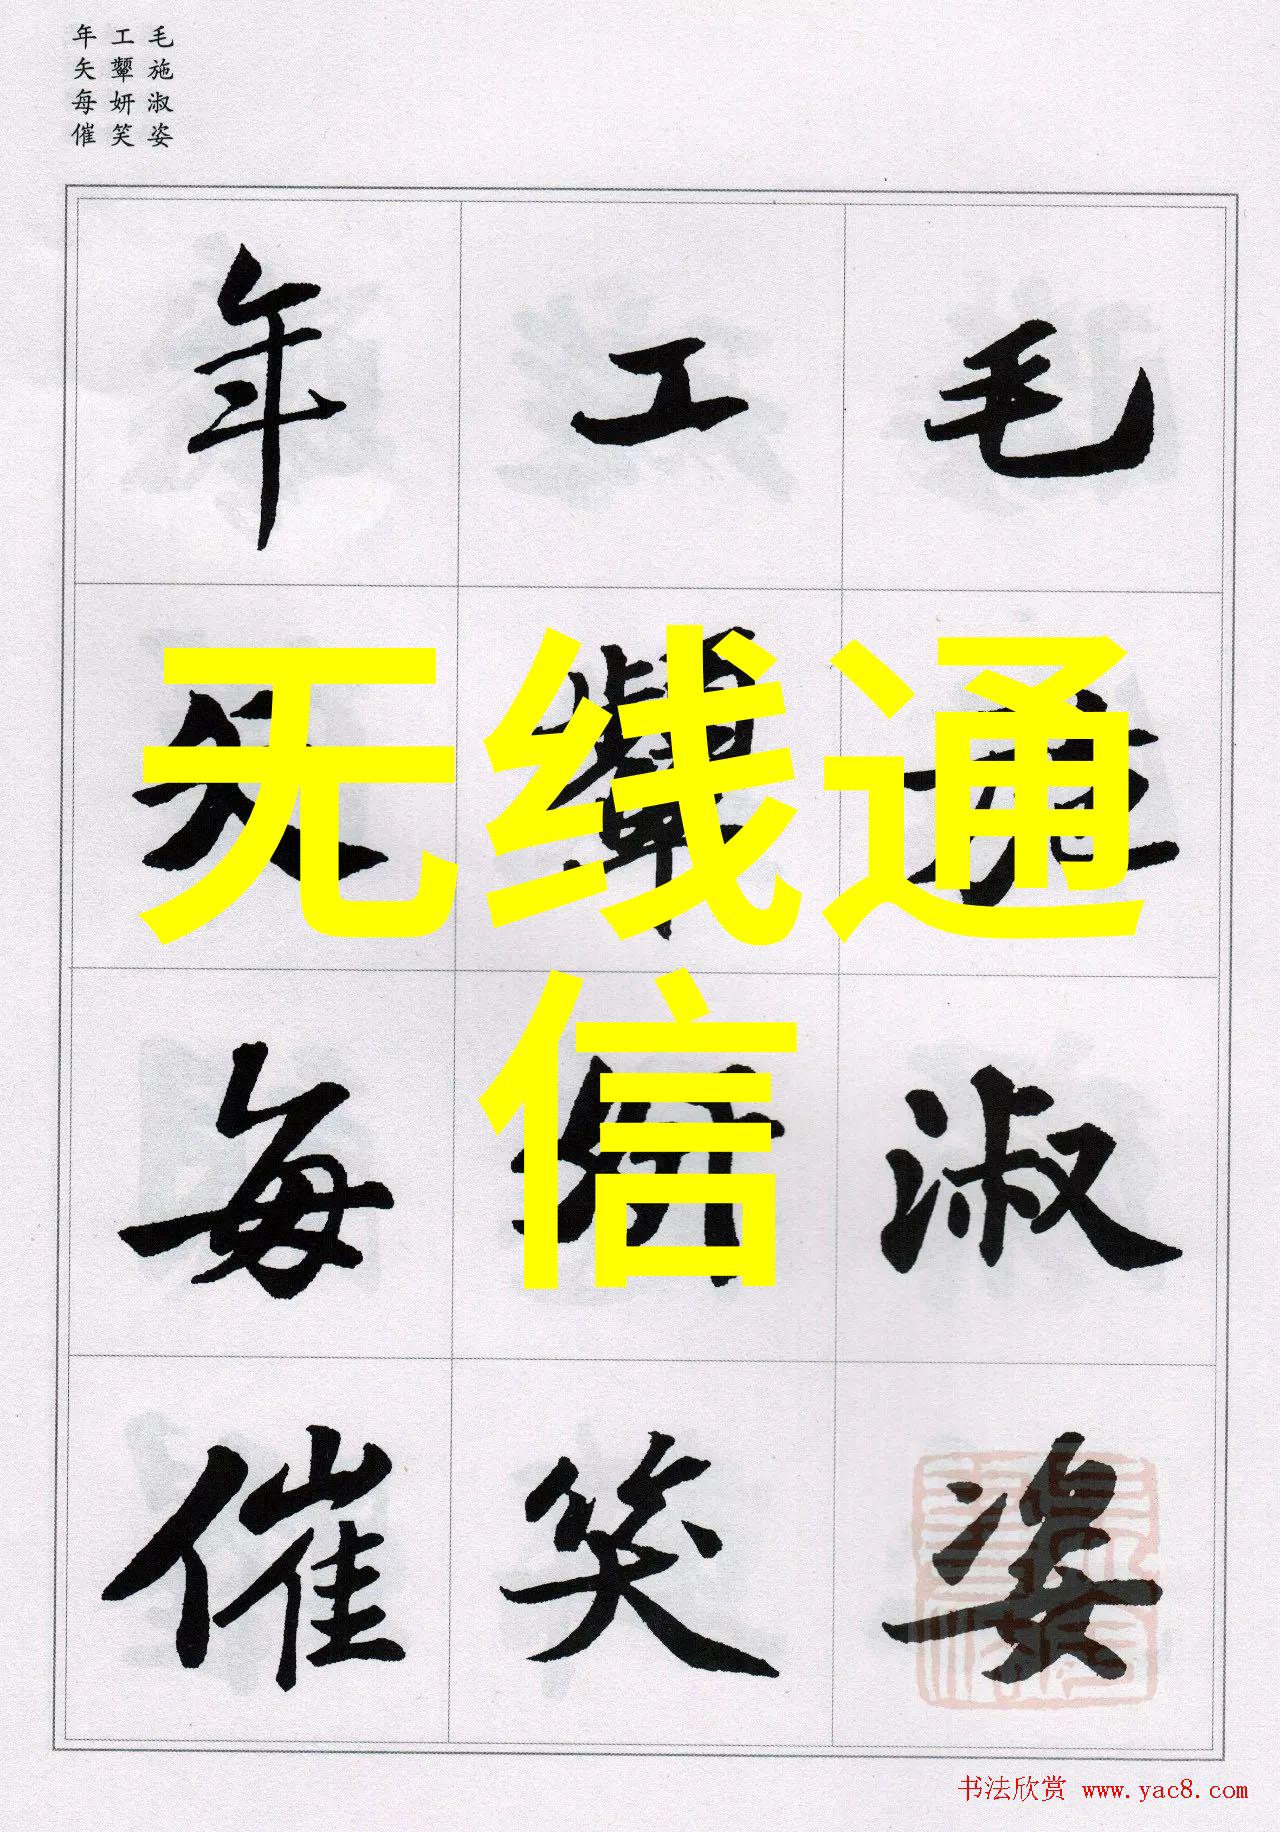 毛施淑姿
工顰妍笑
年矢每催
毛施淑姿
工顰妍笑
年矢每催
无线通
信
书法欣赏 www.yac8.com